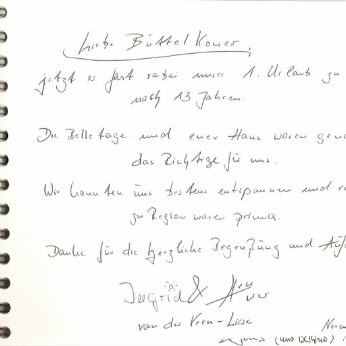 Liebe Büttelkower,
jetzt ist fast vorbei unser 1. Urlaub zu
nach 13 Jahren.
Die Belletage und euer Haus waren gen
das Richtige für uns.
Wir konnten uns bestens entspannen und
zur Region waren prima.
Danke für die herzliche Begrüßung und
Ingrid &
van der